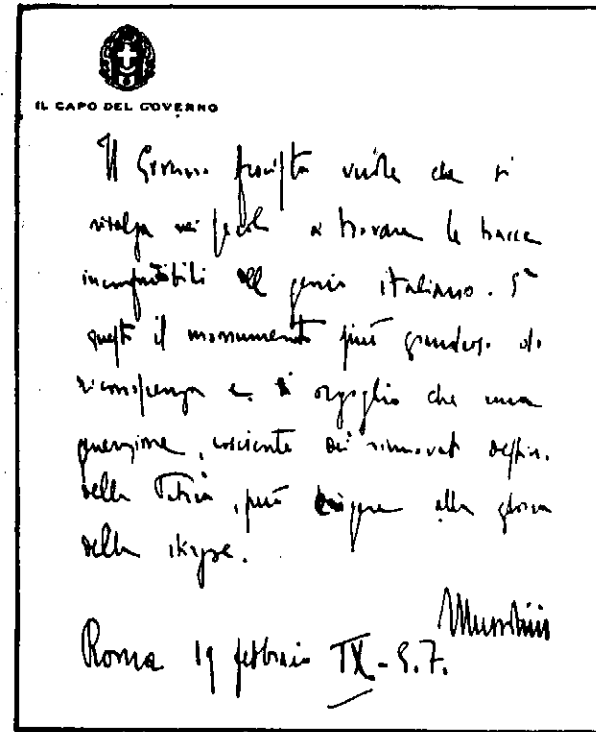 IL CAPO DEL GOVERNO
Il Governo fascista vuole che si
risalga nei secoli a trovare le tracce
incomputabili del genio italiano. È
questo il monumento più grandioso di
riconoscenza e di orgoglio che una
generazione, cosciente dei rinnovati destini
della Patria, può erigere alla gloria
della stirpe.
Mussolini
Roma 19 febbraio IX - E.F.